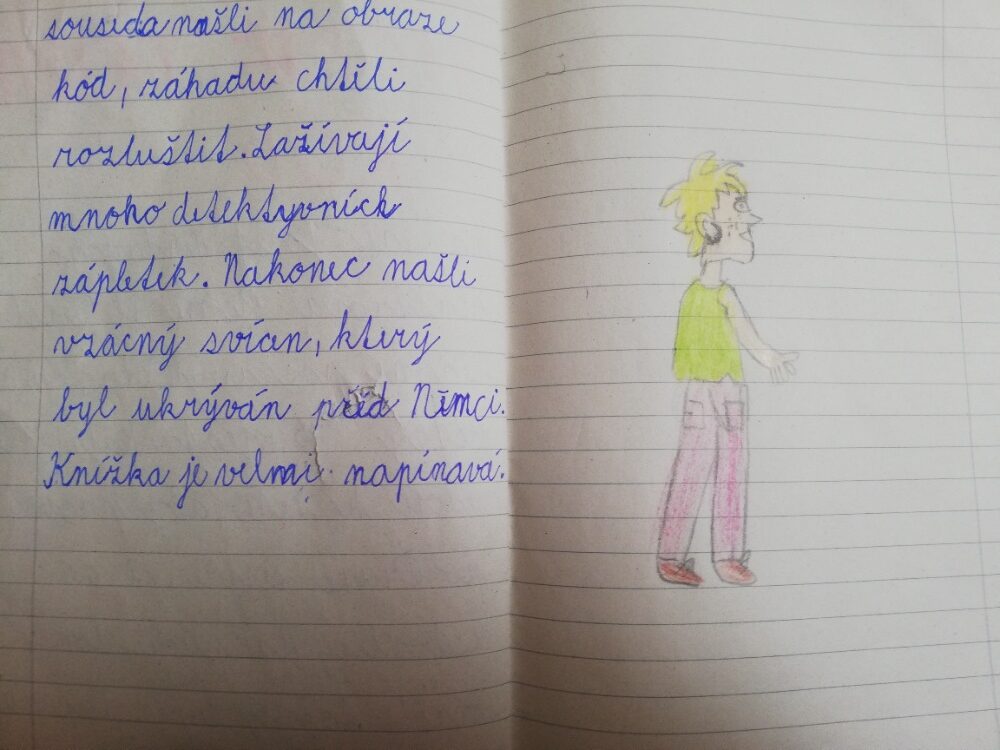 souseda našli na obraze
kód, záhadu chtěli
rozluštit. Zažívají
mnoho detektyvních
zápletek. Nakonec našli
vzácný svícn, který
byl ukrýván před Němci.
Knížka je velmi napínavá.